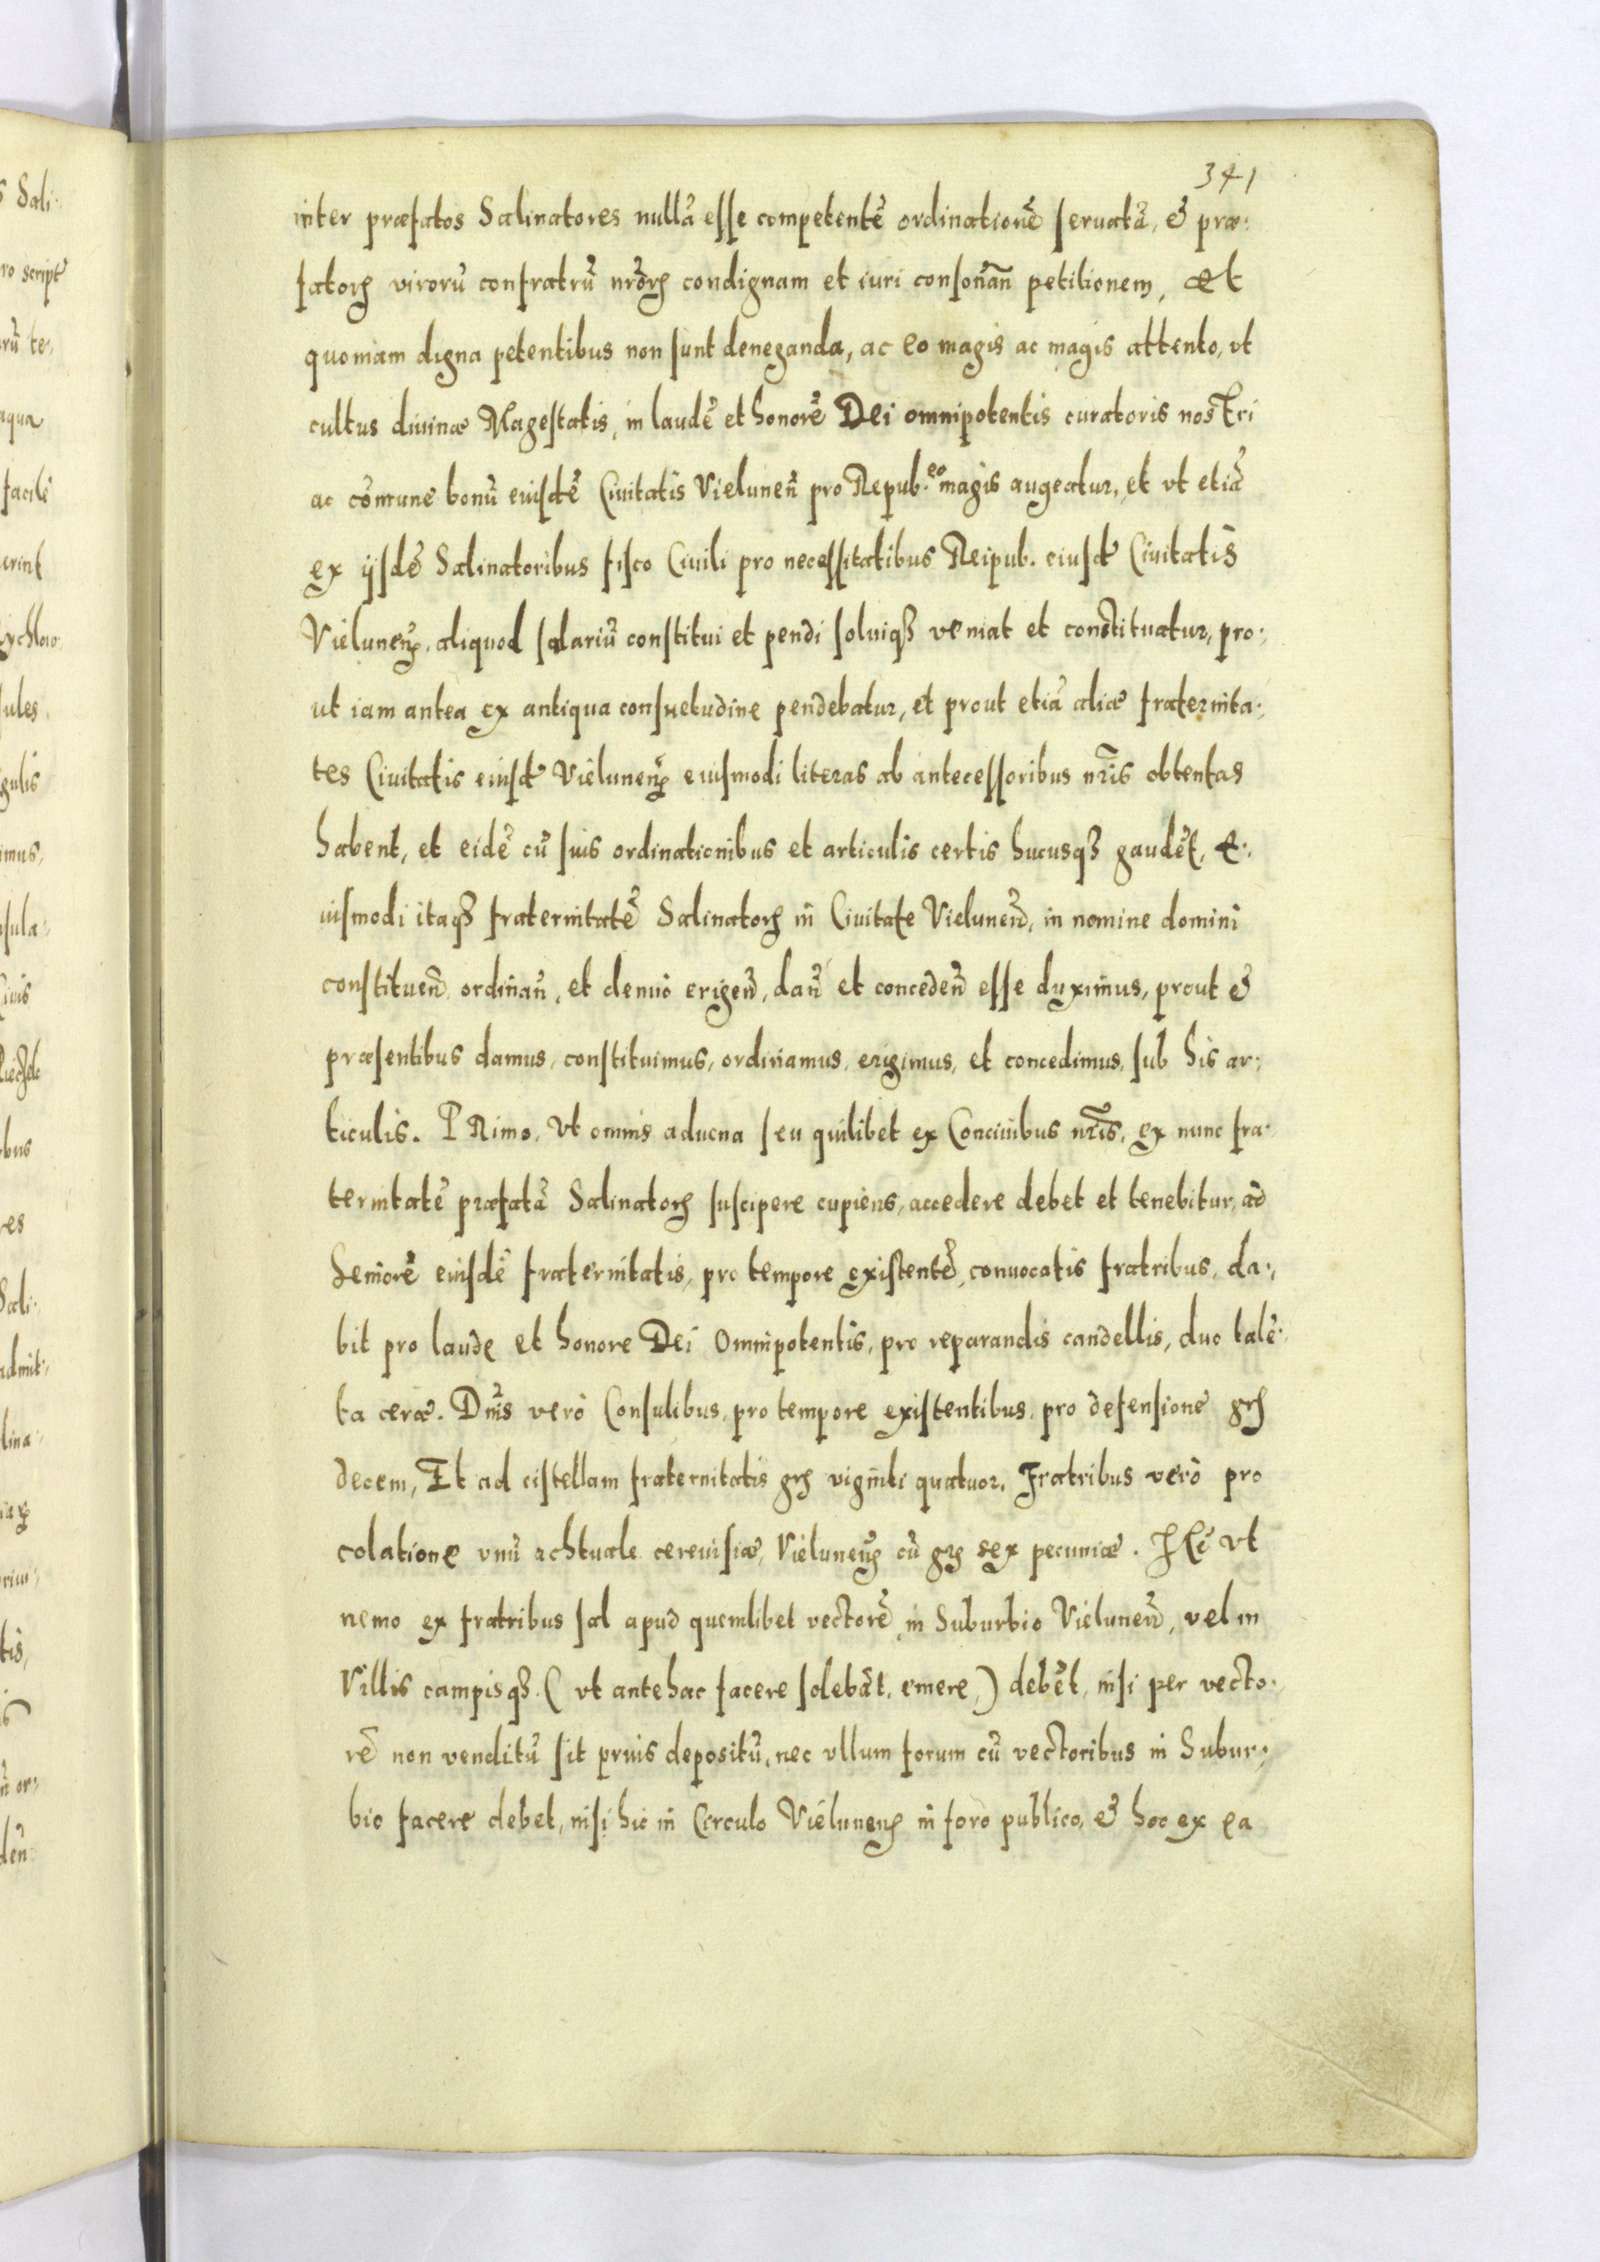 341
inter præfatos Salinatores nullā esse competentē ordinationē seruatā, & præ:
fatorꝝ virorū confratrū nrōrꝝ condignam et iuri consonān petitionem, Et
quoniam digna petentibus non sunt deneganda, ac eo magis ac magis attento, vt
cultus diuinæ Magestatis, in laudē et honorē Dei omnipotentis curatoris nostri
ac cōmune bonū eiusdē Ciuitatis Vielunen̄ pro Repub. eo magis augeatur, et vt etiā
ex ijsdē Salinatoribus fisco Ciuili pro necessitatibus Reipub. eiusd Ciuitatis
Vielunen̄, aliquod salariū constitui et pendi soluiqꝫ veniat et constituatur, pro:
ut iam antea ex antiqua consuetudine pendebatur, et prout etiā aliæ fraternita:
tes Ciuitatis eiusd Vielunen̄ eiusmodi literas ab antecessoribus nr̄is obtentas
habent, et eidē cū suis ordinationibus et articulis certis hucusqꝫ gaudēt, E:
iusmodi itaqꝫ fraternitatē Salinatorꝝ in Ciuitate Vielunen̄, in nomine domini
constituen̄ ordinan̄, et denuo erigen̄, dan̄ et conceden̄ esse duximus, prout &
præsentibus damus, constituimus, ordinamus, erigimus, et concedimus, sub his ar:
ticulis. PRimo, Vt omnis aduena seu quilibet ex Conciuibus nr̄is, ex nunc fra:
ternitatē præfatā Salinatorꝝ suscipere cupiens, accedere debet et tenebitur, ad
Seniorē eiusdē fraternitatis, pro tempore existentē, conuocatis fratribus, da:
bit pro laude et honore Dei Omnipotentis, pro reparandis candellis, duo talē:
ta ceræ. Dn̄is vero Consulibus, pro tempore existentibus, pro defensione grꝭ
decem, Et ad cistellam fraternitatis grꝭ viginti quatuor. Fratribus vero pro
colatione vnū achtuale cereuisiæ, Vielunen̄ cū grꝭ sex pecuniæ. Itē Vt
nemo ex fratribus sal apud quemlibet vectorē, in Suburbio Vielunen̄, vel in
Villis campisqꝫ (vt antehac facere solebāt, emere,) debēt, nisi per vecto:
rē non venditū sit prius depositū, nec vllum forum cū vectoribus in Subur:
bio facere debet, nisi hic in Circulo Vielunen̄ in foro publico, & hoc ex ea